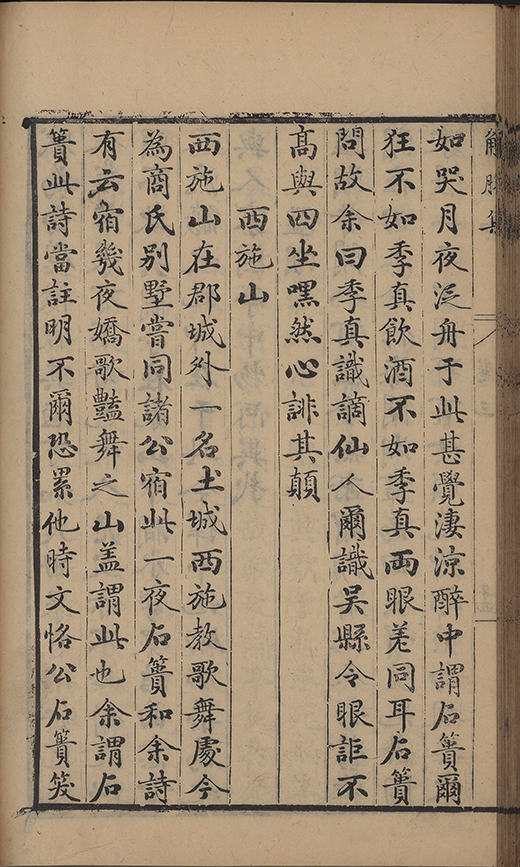 解脫集
如哭月夜泛舟于此甚覺淒涼醉中謂石簣爾
狂不如季真飲酒不如季真兩眼差同耳石簣
問故余曰季真識謫仙人爾識吳縣令眼詎不
高與四坐嘿然心誹其顛
西施山
西施山在郡城外一名土城西施教歌舞處今
為商氏別墅嘗同諸公宿此一夜石簣和余詩
有云宿幾夜嬌歌豔舞之山盖謂此也余謂石
簣此詩當註明不爾恐累他時文恪公石簣笑